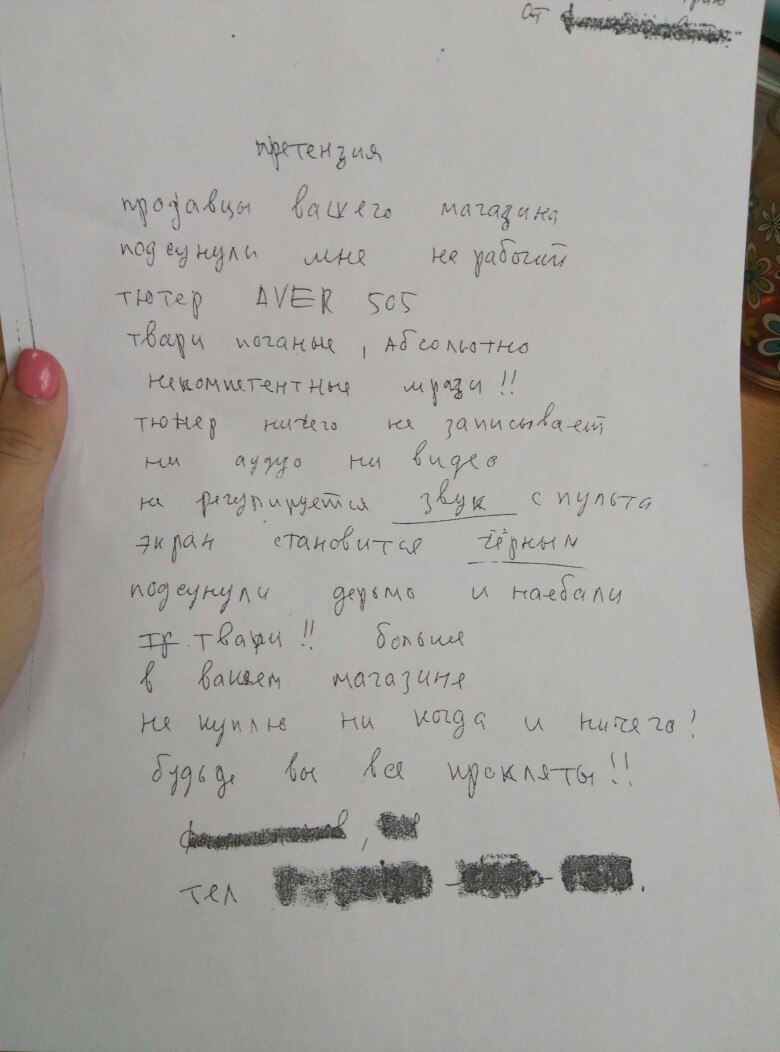 от
претензия
продавцы вашего магазина
подсунули мне не рабочий
тютер AVER 505
твари поганые, абсольтно
некомпетентные мрази!!
тюнер ничего не записывает
ни аудуо ни видео
не регулируется звук с пульта
экран становится чёрным
подсунули дерьмо и наебали
твари!! больше
в вашем магазине
не куплю ни когда и ничего!
будьде вы все прокляты!!
тел